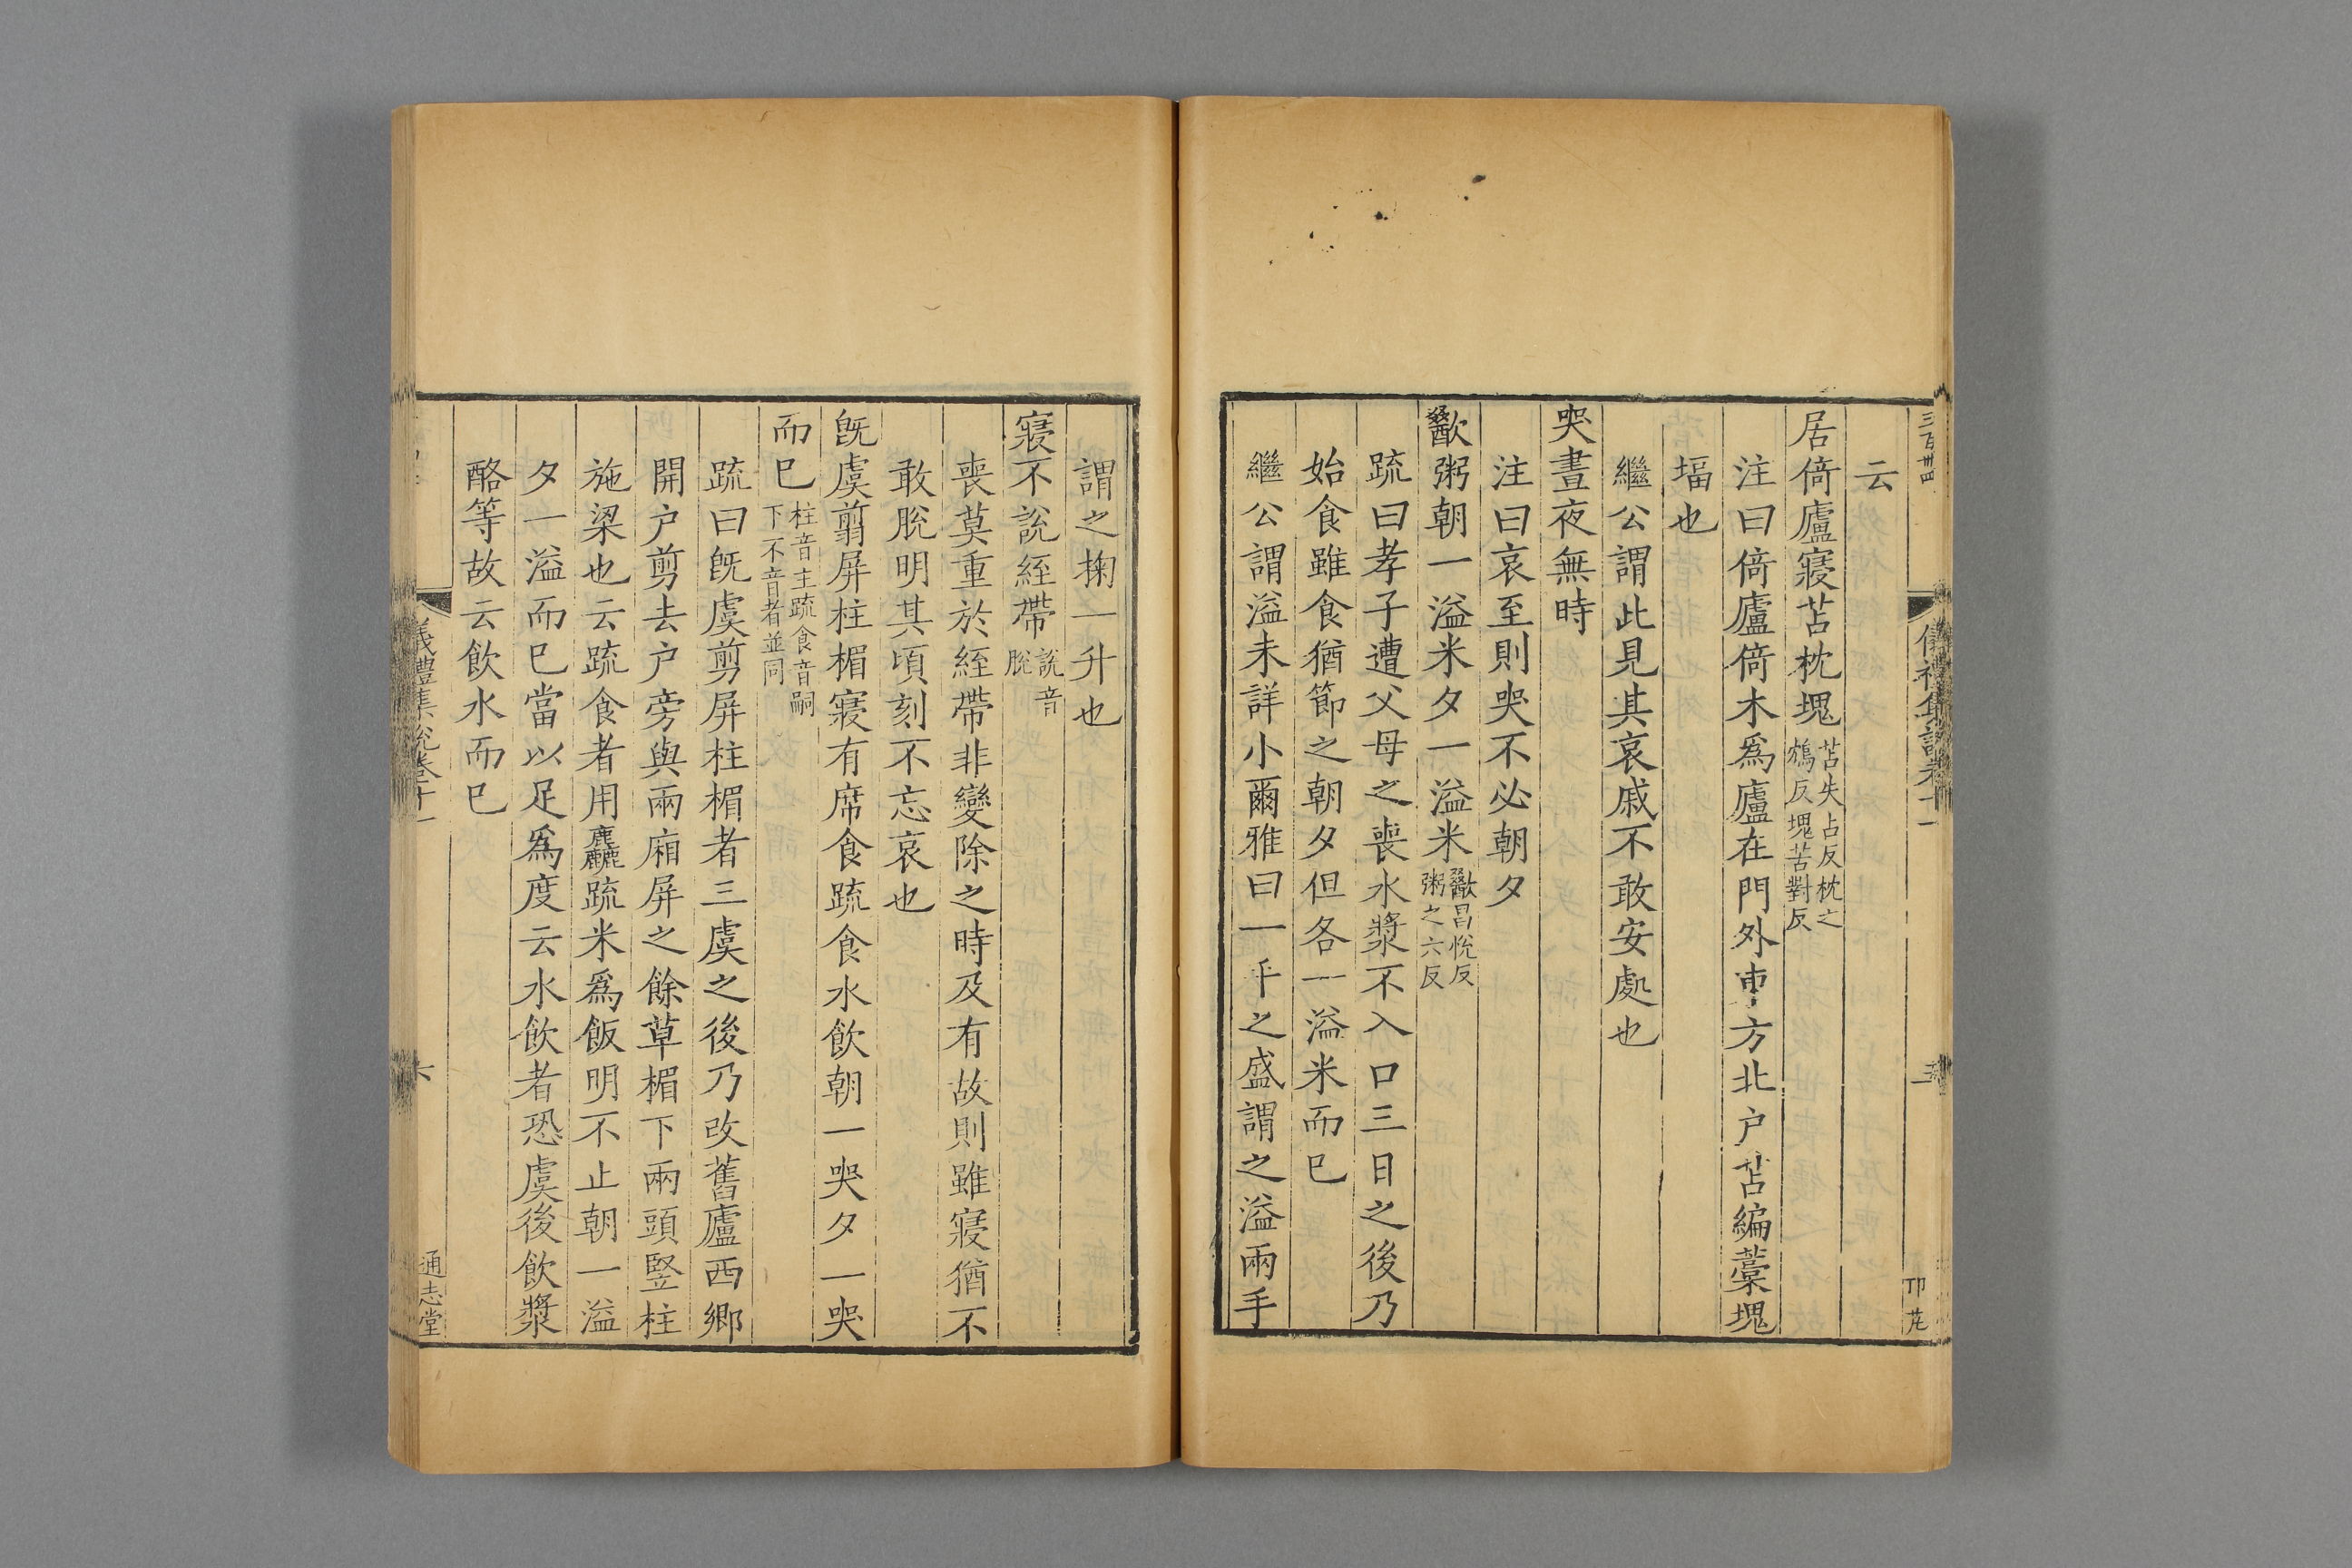 三百卅四
儀禮集說卷十一
云
居倚廬寢苫枕塊苫失占反枕之鴆反塊苦對反
注曰倚廬倚木爲廬在門外東方北户苫編藁塊
堛也
繼公謂此見其哀戚不敢安處也
哭晝夜無時
注曰哀至則哭不必朝夕
歠粥朝一溢米夕一溢米歠昌悅反粥之六反
疏曰孝子遭父母之喪水漿不入口三日之後乃
始食雖食猶節之朝夕但各一溢米而巳
繼公謂溢未詳小爾雅曰一手之盛謂之溢兩手
謂之掬一升也
寢不說絰帶說音脫
喪莫重於絰帶非變除之時及有故則雖寢猶不
敢脫明其頃刻不忘哀也
旣虞翦屏柱楣寢有席食疏食水飲朝一哭夕一哭
而巳柱音主疏食音嗣下不音者並同
疏曰旣虞剪屏柱楣者三虞之後乃改舊廬西鄉
開户剪去户旁與兩廂屏之餘草楣下兩頭竪柱
施梁也云疏食者用麤疏米爲飯明不止朝一溢
夕一溢而巳當以足爲度云水飲者恐虞後飲漿
酪等故云飲水而巳
儀禮集說卷十一
六
通志堂